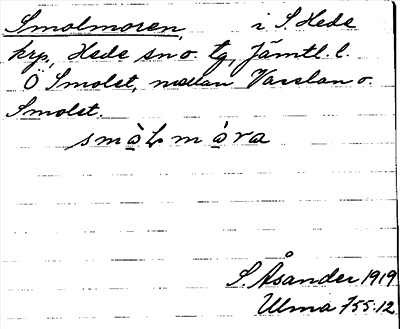 Smolmoren, i S. Hede
krp, Hede sn o. tg, Jämtl. l.
Ö Smolet, mellan Varslan o.
Smolet.
smàLmára
S. Åsander 1919
Ulma 755:12